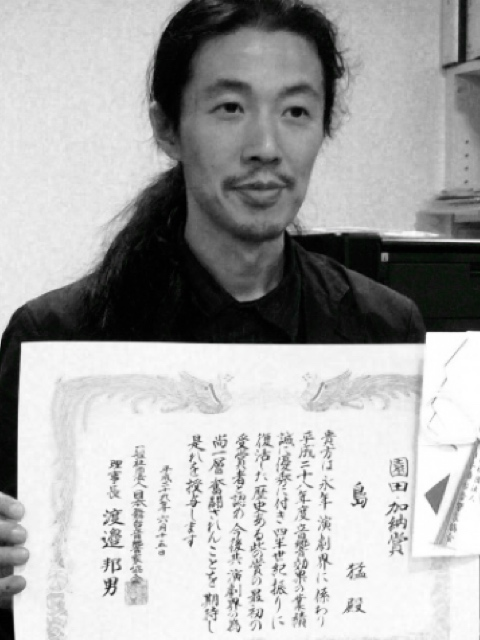 園田加納賞
島 猛 殿
貴方は永年演劇界に係わり
平成二十八年度音響効果の業績
誠に優秀に付き四半世紀振りに
復活した歴史ある此の賞の最初の
受賞者と認め今後共演劇界の為
尚一層奮闘されんことを期待し
是れを授与します
平成二十九年六月十五日
一般社団法人日本舞台音響家協会
理事長 渡邊邦男